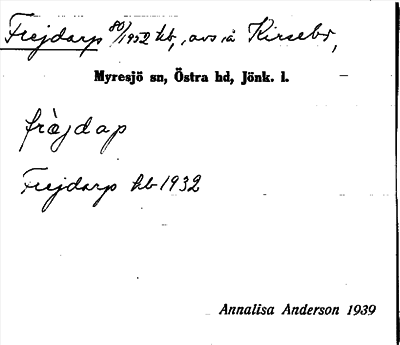 Frejdarp 80/1952 hb, avs å Kirsebo,
Myresjö sn, Östra hd, Jönk. l.
fràjdap
Frejdarp hb 1932
Annalisa Anderson 1939